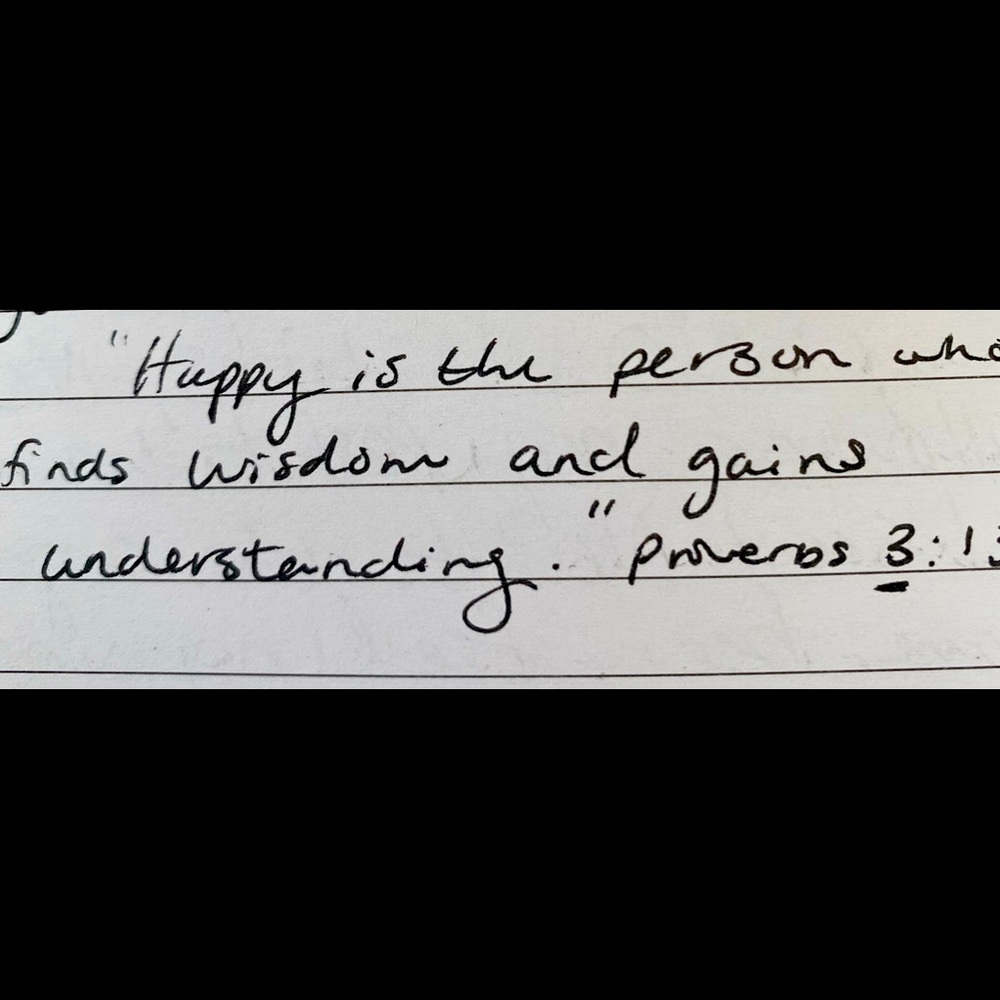 "Happy is the person who
finds wisdom and gains
understanding." Proverbs 3:13